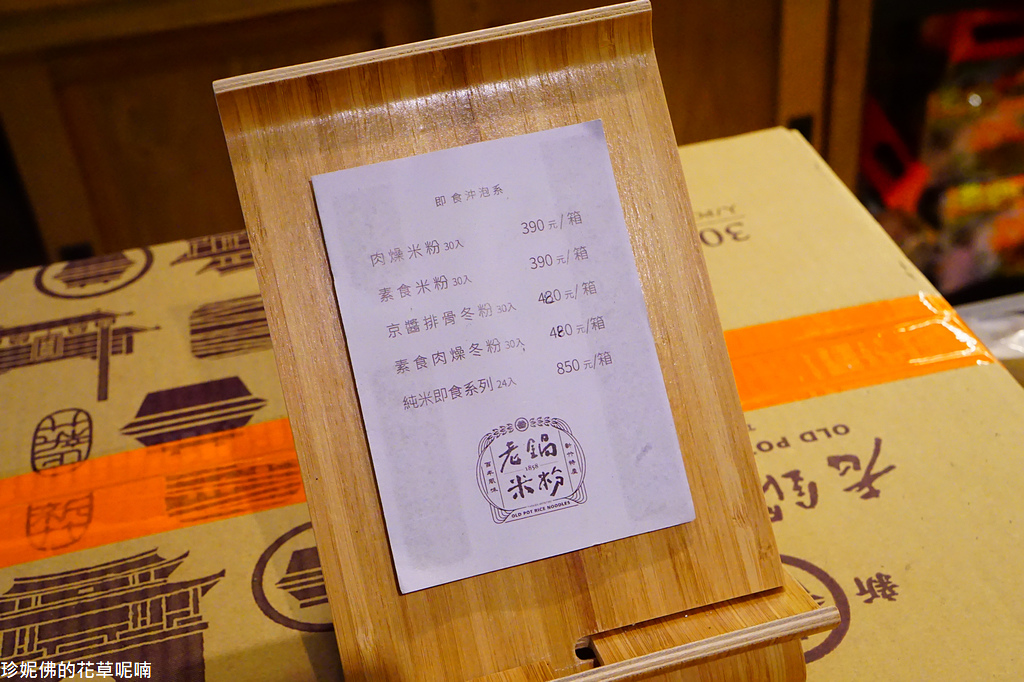 即食沖泡系
肉燥米粉 30入 390 元/箱
素食米粉 30入 390 元/箱
京醬排骨冬粉 30入 480 元/箱
素食肉燥冬粉 30入 480 元/箱
純米即食系列 24入 850 元/箱
老鍋
1858
米粉
百年風味
新竹特產
OLD POT RICE NOODLES
30
OLD POT
老
新
珍妮佛的花草呢喃